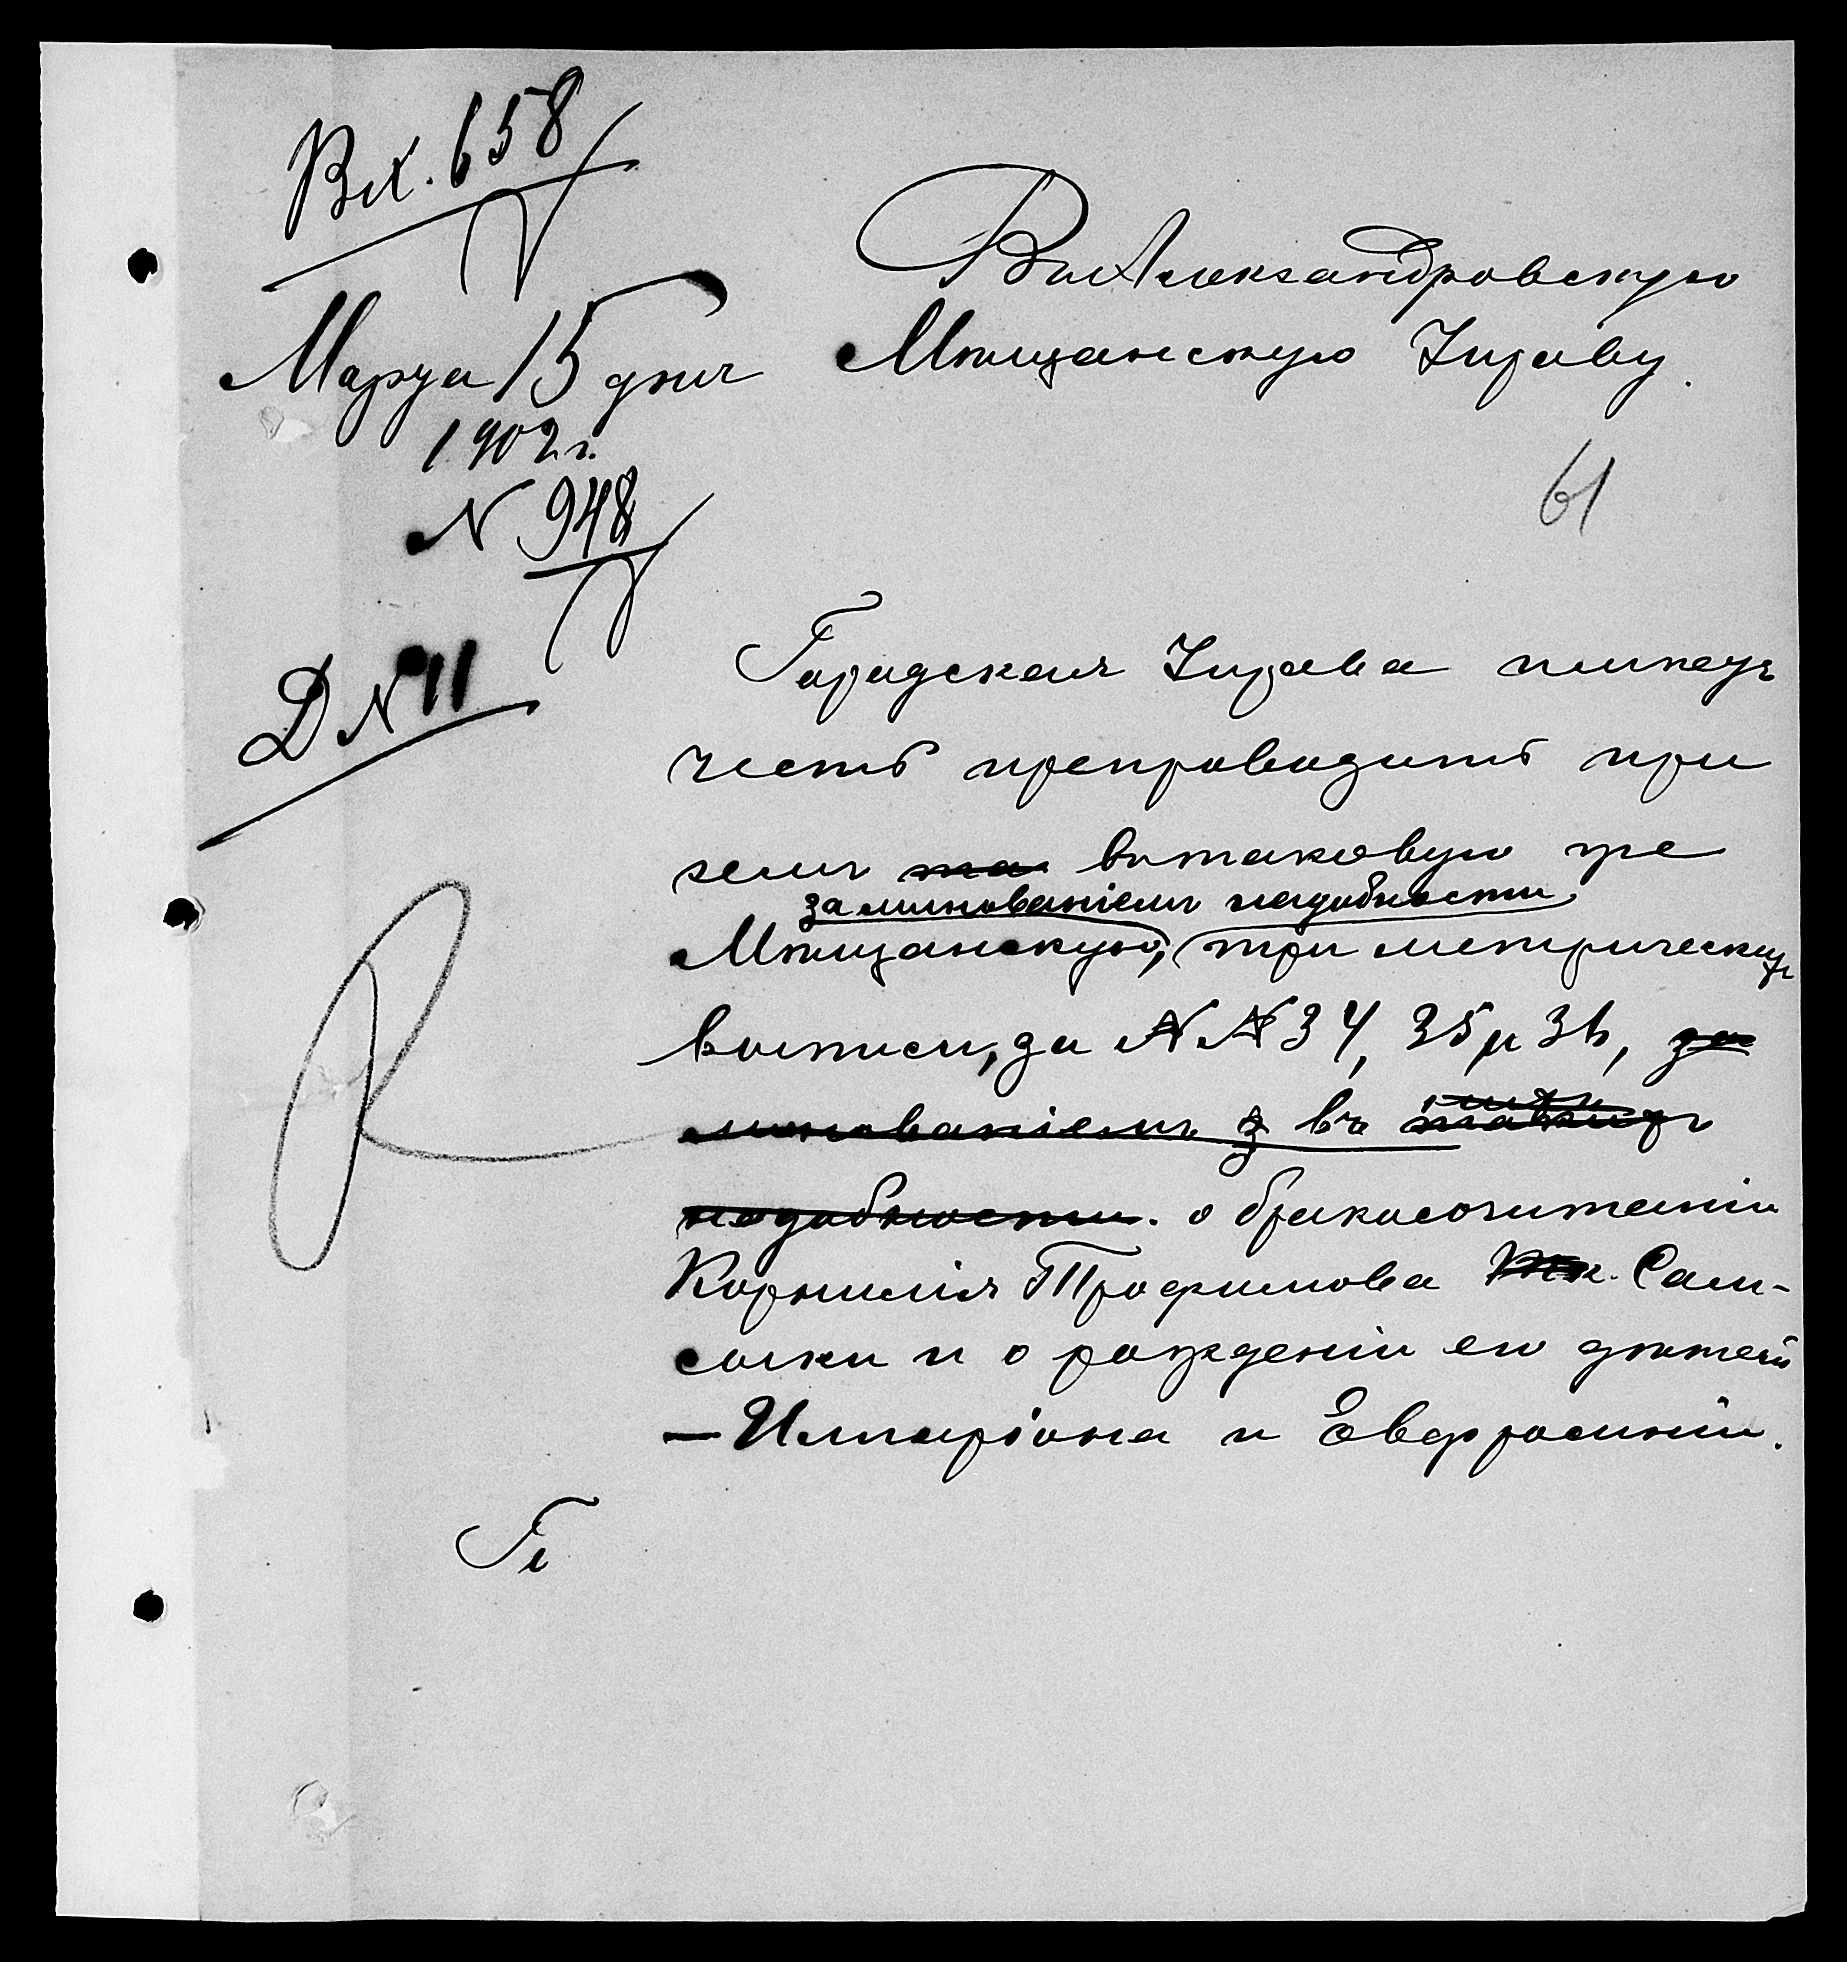 Вх. 658
Марта 15 дня
1902 г.
N 948
Д N 11
Въ Александровскую
Мѣщанскую Управу.
61
Городская Управа имѣетъ
честь препроводить при
семъ въ таковую же
за минованіемъ надобности
Мѣщанскую, три метрическихъ
выписи, за №№ 34, 35 и 36, за
минованіемъ въ нихъ
надобности. о бракосочетаніи
Корнилія Трофимова Сам-
соики и о рожденіи его дѣтей
— Иларіона и Евфросиніи.
Гл